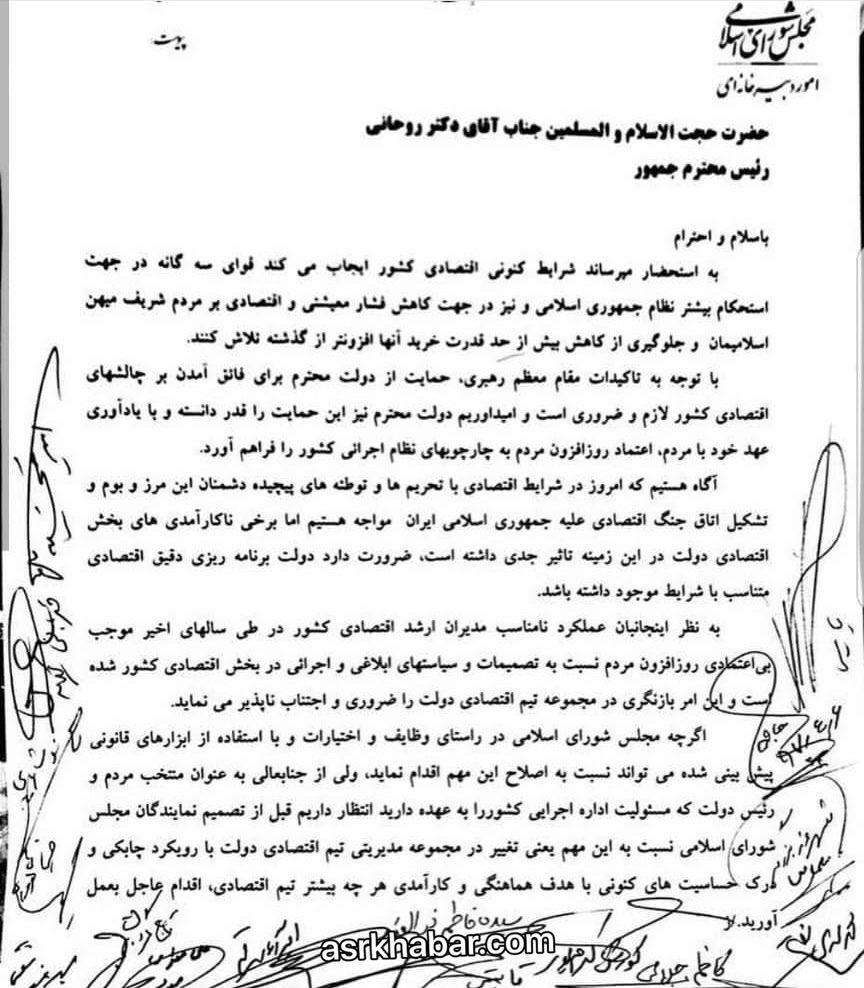 مجلس شورای اسلامی
امور دبیرخانه‌ای
پیوست:
حضرت حجت الاسلام و المسلمین جناب آقای دکتر روحانی
رئیس محترم جمهور
باسلام و احترام
به استحضار میرساند شرایط کنونی اقتصادی کشور ایجاب می کند قوای سه گانه در جهت
استحکام بیشتر نظام جمهوری اسلامی و نیز در جهت کاهش فشار معیشتی و اقتصادی بر مردم شریف میهن
اسلامیمان و جلوگیری از کاهش بیش از حد قدرت خرید آنها افزونتر از گذشته تلاش کنند.
با توجه به تاکیدات مقام معظم رهبری، حمایت از دولت محترم برای فائق آمدن بر چالشهای
اقتصادی کشور لازم و ضروری است و امیداوریم دولت محترم نیز این حمایت را قدر دانسته و با یادآوری
عهد خود با مردم، اعتماد روزافزون مردم به چارچوبهای نظام اجرائی کشور را فراهم آورد.
آگاه هستیم که امروز در شرایط اقتصادی با تحریم ها و توطئه های پیچیده دشمنان این مرز و بوم و
تشکیل اتاق جنگ اقتصادی علیه جمهوری اسلامی ایران مواجه هستیم اما برخی ناکارآمدی های بخش
اقتصادی دولت در این زمینه تاثیر جدی داشته است، ضرورت دارد دولت برنامه ریزی دقیق اقتصادی
متناسب با شرایط موجود داشته باشد.
به نظر اینجانبان عملکرد نامناسب مدیران ارشد اقتصادی کشور در طی سالهای اخیر موجب
بی‌اعتمادی روزافزون مردم نسبت به تصمیمات و سیاستهای ابلاغی و اجرائی در بخش اقتصادی کشور شده
است و این امر بازنگری در مجموعه تیم اقتصادی دولت را ضروری و اجتناب ناپذیر می نماید.
اگرچه مجلس شورای اسلامی در راستای وظایف و اختیارات و با استفاده از ابزارهای قانونی
پیش بینی شده می تواند نسبت به اصلاح این مهم اقدام نماید، ولی از جنابعالی به عنوان منتخب مردم و
رئیس دولت که مسئولیت اداره اجرایی کشوررا به عهده دارید انتظار داریم قبل از تصمیم نمایندگان مجلس
شورای اسلامی نسبت به این مهم یعنی تغییر در مجموعه مدیریتی تیم اقتصادی دولت با رویکرد چابکی و
درک حساسیت های کنونی با هدف هماهنگی و کارآمدی هر چه بیشتر تیم اقتصادی، اقدام عاجل بعمل
آورید.
سیده فاطمه
کاظم جلالی
asrkhabar.com